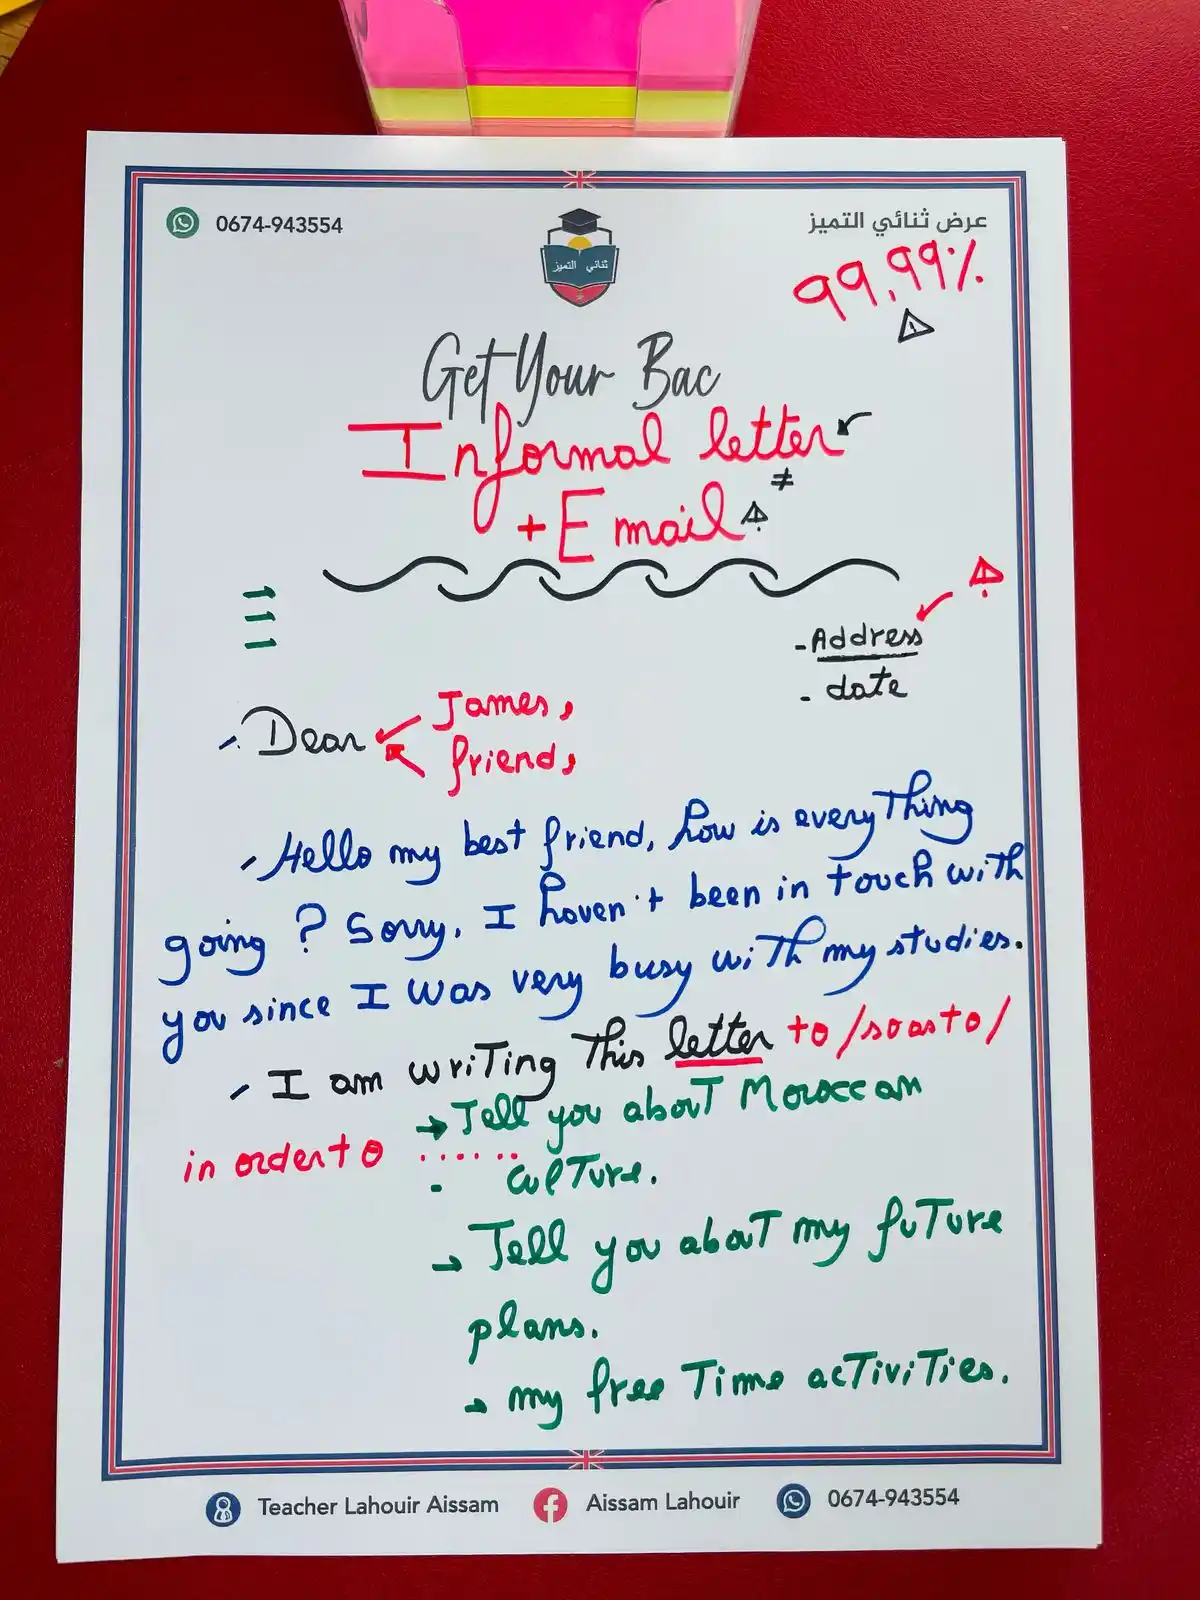 0674-943554
عرض ثنائي التميز
ثنائي التميز
99,99%
Get Your Bac
Informal letter
≠
+ Email
- Address
- date
Dear James,
friend,
Hello my best friend, how is everything
going? Sorry, I haven't been in touch with
you since I was very busy with my studies.
I am writing this letter to / so as to /
in order to
→ Tell you about Moroccan
culture.
→ Tell you about my future
plans.
→ my free Time activities.
Teacher Lahouir Aissam
Aissam Lahouir
0674-943554